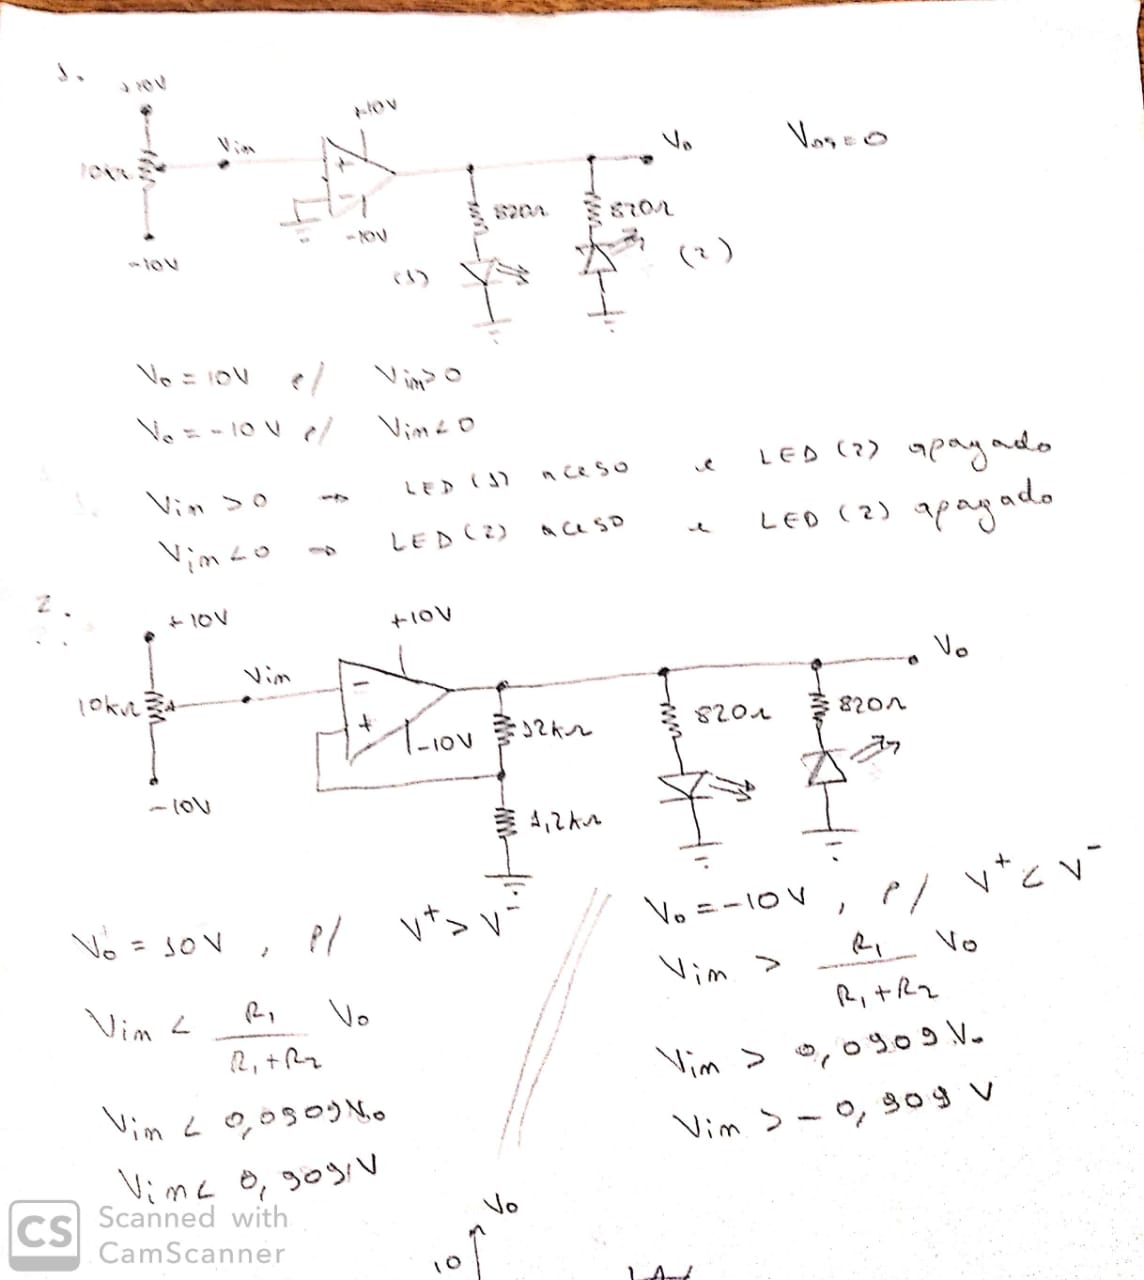 1.
+10V
+10V
10kΩ
Vin
+
-
-10V
-10V
Vo
Vos=0
820Ω
820Ω
(1)
(2)
Vo = 10V p/ Vin>0
Vo = -10V p/ Vin<0
Vin >0 → LED (1) aceso e LED (2) apagado
Vin <0 → LED (2) aceso e LED (2) apagado
2.
+10V
+10V
10kΩ
Vin
-
+
-10V
-10V
12kΩ
1,2kΩ
820Ω
820Ω
Vo
Vo = 10V , p/ V+ > V-
Vin < R1/(R1+R2) Vo
Vin < 0,0909Vo
Vin < 0,9091V
Vo = -10V , p/ V+ < V-
Vin > R1/(R1+R2) Vo
Vin > 0,0909Vo
Vin > -0,909 V
Vo
10
CS Scanned with
CamScanner